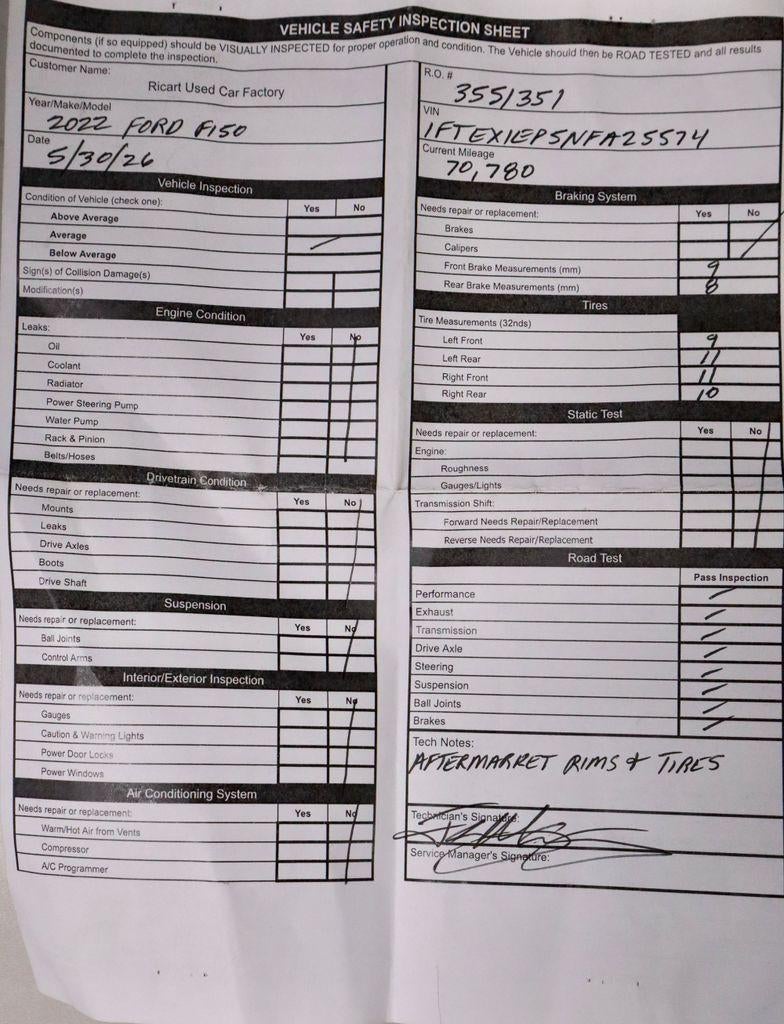 VEHICLE SAFETY INSPECTION SHEET
Components (if so equipped) should be VISUALLY INSPECTED for proper operation and condition. The Vehicle should then be ROAD TESTED and all results
documented to complete the inspection.
Customer Name:
Ricart Used Car Factory
Year/Make/Model
2022 FORD F150
Date
5/30/26
Vehicle Inspection
Condition of Vehicle (check one): Yes No
Above Average
Average
Below Average
Sign(s) of Collision Damage(s)
Modification(s)
Engine Condition
Leaks: Yes No
Oil
Coolant
Radiator
Power Steering Pump
Water Pump
Rack & Pinion
Belts/Hoses
Drivetrain Condition
Needs repair or replacement: Yes No
Mounts
Leaks
Drive Axles
Boots
Drive Shaft
Suspension
Needs repair or replacement: Yes No
Ball Joints
Control Arms
Interior/Exterior Inspection
Needs repair or replacement: Yes No
Gauges
Caution & Warning Lights
Power Door Locks
Power Windows
Air Conditioning System
Needs repair or replacement: Yes No
Warm/Hot Air from Vents
Compressor
A/C Programmer
R.O. #
355/351
VIN
1FTEX1EP5NFA25574
Current Mileage
70,780
Braking System
Needs repair or replacement: Yes No
Brakes
Calipers
Front Brake Measurements (mm) 9
Rear Brake Measurements (mm) 8
Tires
Tire Measurements (32nds)
Left Front 9
Left Rear 11
Right Front 11
Right Rear 10
Static Test
Needs repair or replacement: Yes No
Engine:
Roughness
Gauges/Lights
Transmission Shift:
Forward Needs Repair/Replacement
Reverse Needs Repair/Replacement
Road Test
Pass Inspection
Performance
Exhaust
Transmission
Drive Axle
Steering
Suspension
Ball Joints
Brakes
Tech Notes:
AFTERMARKET RIMS & TIRES
Technician's Signature:
Service Manager's Signature: